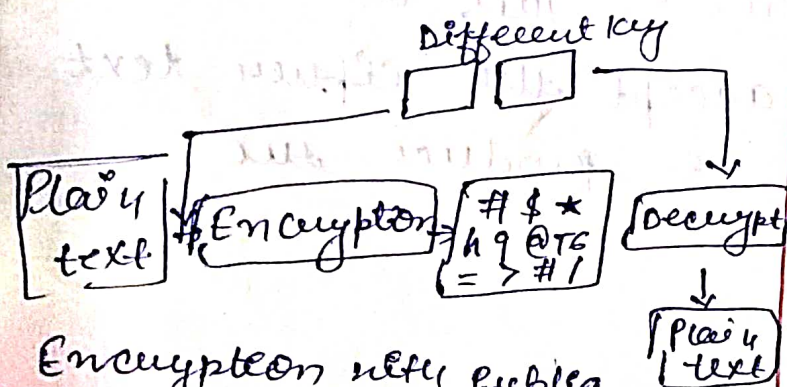 Different key
Plain
text
Encryption
# $ *
h q @ T6
= > # /
Decrypt
Plain
text
Encryption with public